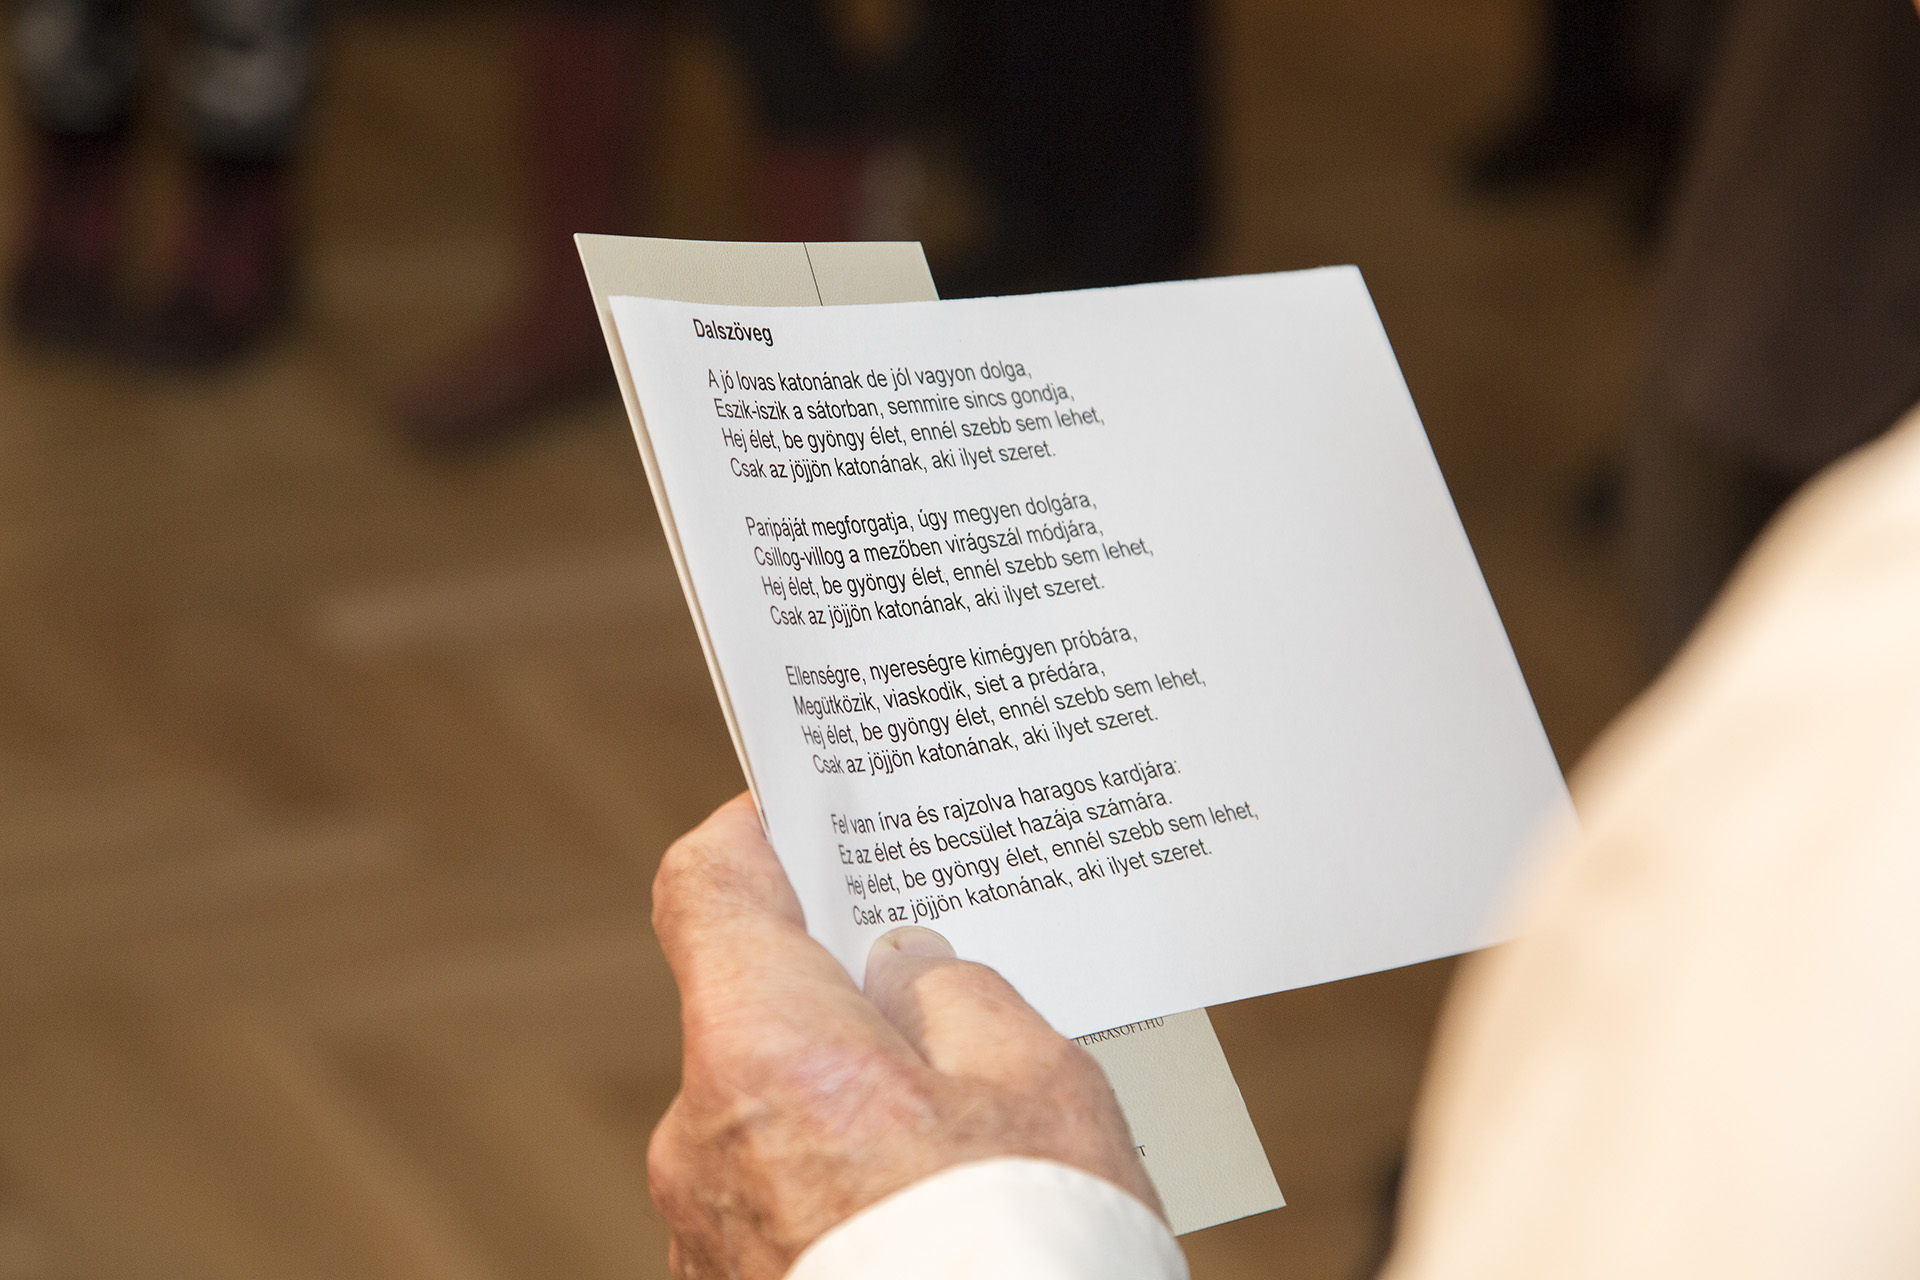 Dalszöveg
A jó lovas katonának de jól vagyon dolga,
Eszik-iszik a sátorban, semmire sincs gondja,
Hej élet, be gyöngy élet, ennél szebb sem lehet,
Csak az jöjjön katonának, aki ilyet szeret.
Paripáját megforgatja, úgy megyen dolgára,
Csillog-villog a mezőben virágszál módjára,
Hej élet, be gyöngy élet, ennél szebb sem lehet,
Csak az jöjjön katonának, aki ilyet szeret.
Ellenségre, nyereségre kimégyen próbára,
Megütközik, viaskodik, siet a prédára,
Hej élet, be gyöngy élet, ennél szebb sem lehet,
Csak az jöjjön katonának, aki ilyet szeret.
Fel van írva és rajzolva haragos kardjára:
Ez az élet és becsület hazája számára.
Hej élet, be gyöngy élet, ennél szebb sem lehet,
Csak az jöjjön katonának, aki ilyet szeret.
TERRASOFT.HU